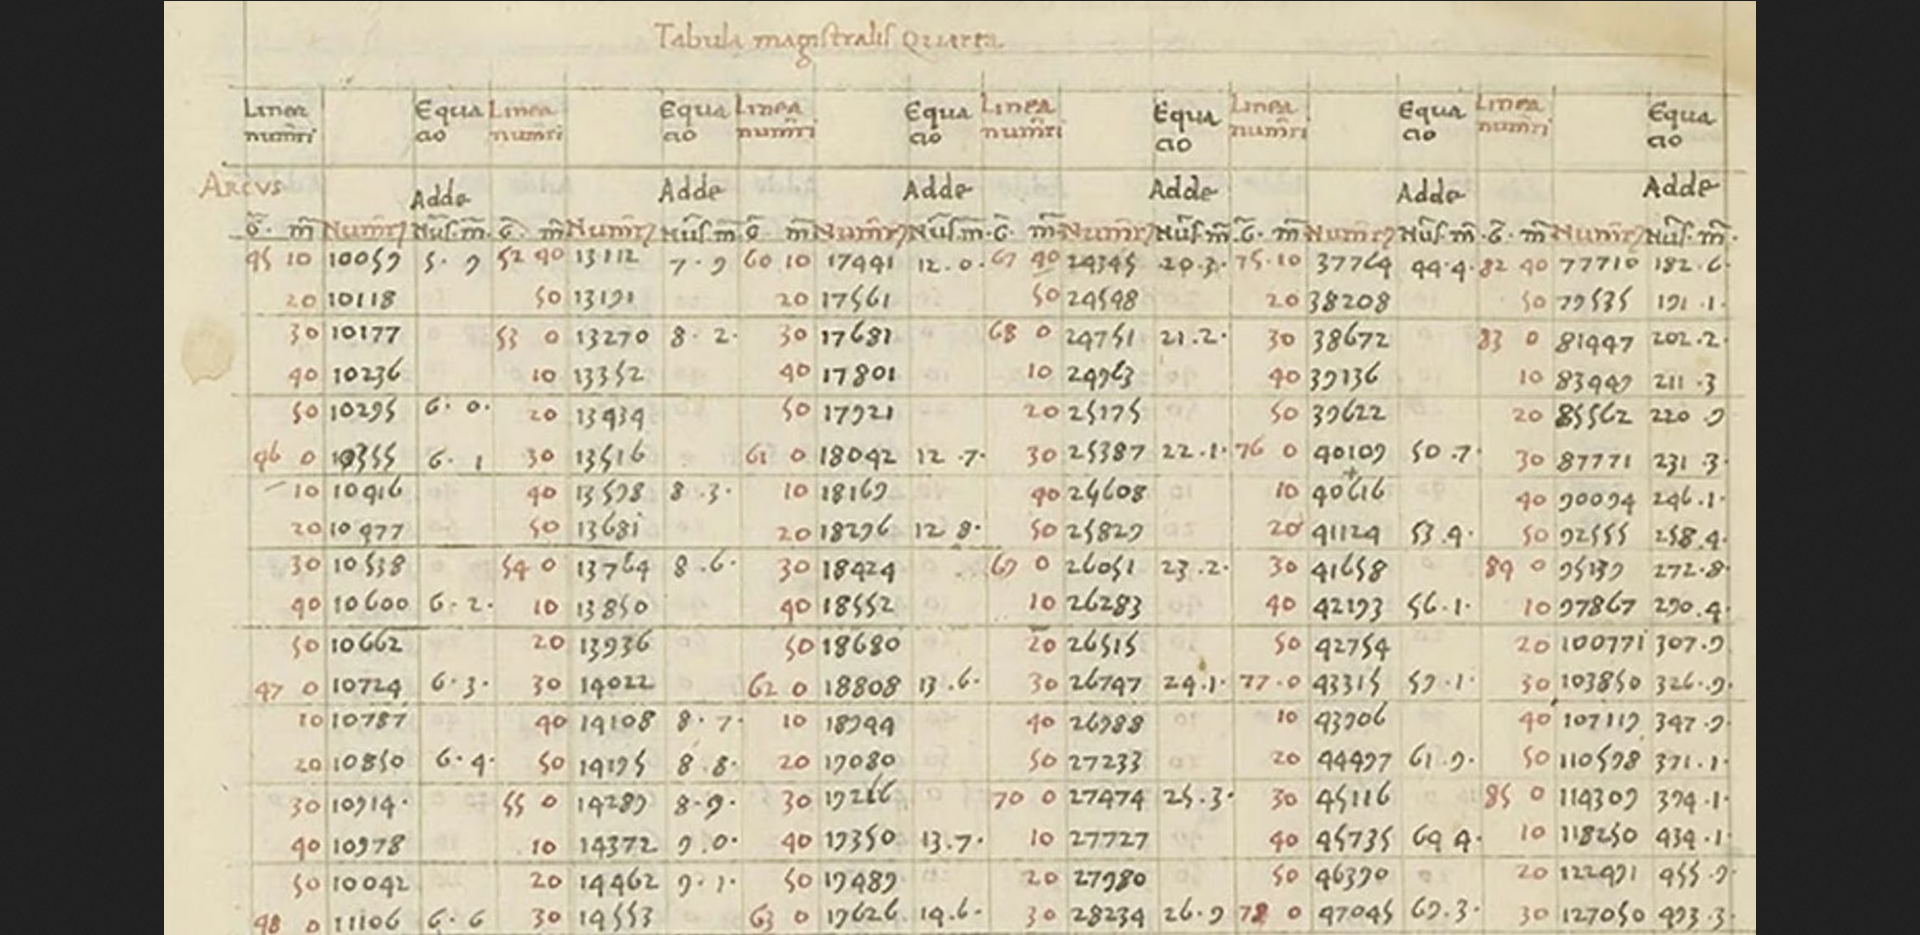 Tabula magistralis Quarta
Linea Equa Linea Equa Linea Equa Linea Equa Linea Equa Linea Equa
num̃ri cio num̃ri cio num̃ri cio num̃ri cio num̃ri cio num̃ri cio
Arcus Adde Adde Adde Adde Adde Adde
45 10 10059 5.9 52 40 13112 7.9 60 10 17441 12.0. 67 40 24345 20.3. 75.10 37764 44.4. 82 40 77710 182.6.
20 10118 50 13191 20 17561 50 24548 20 38208 50 79535 191.1.
30 10177 53 0 13270 8.2. 30 17681 68 0 24751 21.2. 30 38672 83 0 81447 202.2.
40 10236 10 13352 40 17801 10 24963 40 39136 10 83449 211.3
50 10295 6.0. 20 13434 50 17921 20 25175 50 39622 20 85562 220.9
46 0 10355 6.1 30 13516 61 0 18042 12.7. 30 25387 22.1. 76 0 40109 50.7. 30 87771 231.3.
10 10416 40 13598 8.3. 10 18169 40 25608 10 40616 40 90094 246.1.
20 10477 50 13681 20 18296 12 8. 50 25829 20 41124 53.4. 50 92555 258.4.
30 10538 54 0 13764 8.6. 30 18424 69 0 26051 23.2. 30 41658 84 0 95139 272.8.
40 10600 6.2. 10 13850 40 18552 10 26283 40 42193 56.1. 10 97867 290.4.
50 10662 20 13936 50 18680 20 26515 50 42754 20 100771 307.9
47 0 10724 6.3. 30 14022 62 0 18808 13.6. 30 26747 24.1. 77.0 43315 59.1. 30 103850 326.9.
10 10787 40 14108 8.7. 10 18944 40 26988 10 43906 40 107119 347.9
20 10850 6.4. 50 14195 8.8. 20 19080 50 27233 20 44497 61.9. 50 110598 371.1.
30 10914. 55 0 14289 8.9. 30 19216 70 0 27474 25.3. 30 45116 85 0 114309 394.1.
40 10978 10 14372 9.0. 40 19350 13.7. 10 27727 40 45735 64 4. 10 118250 434.1.
50 10042 20 14462 9.1. 50 19489 20 27980 50 46390 20 122491 455.9
48 0 11106 6.6 30 14553 63 0 19626 14.6. 30 28234 26.9 78 0 47045 69.3. 30 127050 493.3.